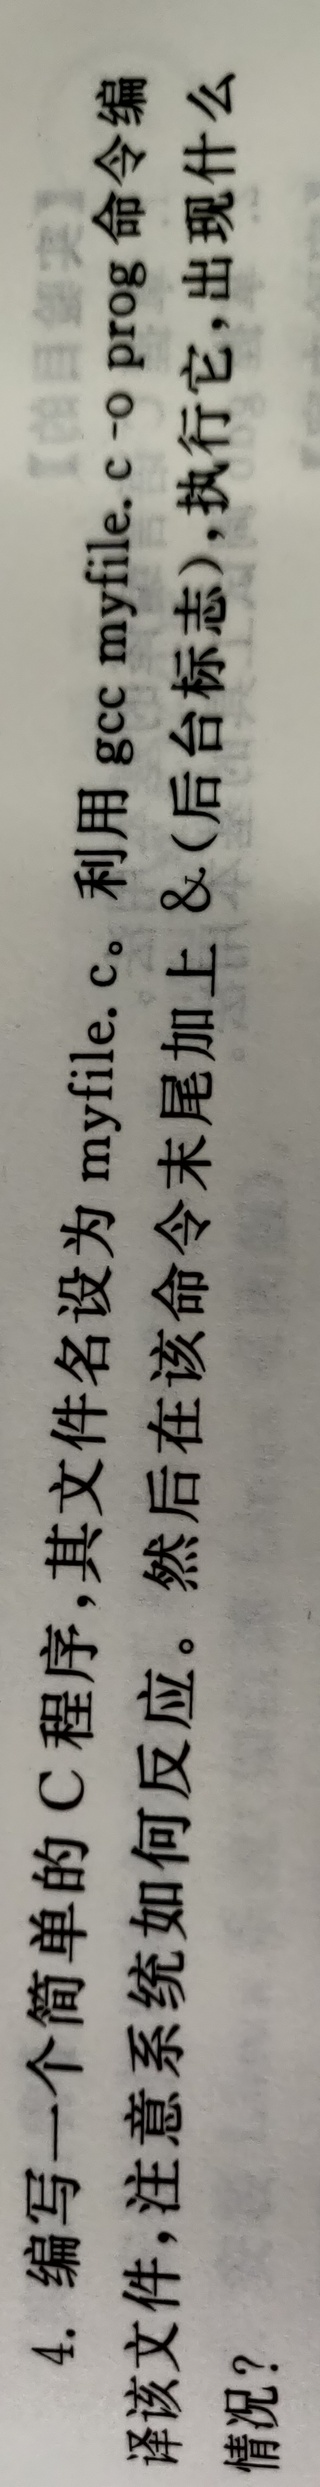 4. 编写一个简单的 C 程序,其文件名设为 myfile. c。利用 gcc myfile. c -o prog 命令编
译该文件,注意系统如何反应。然后在该命令末尾加上 &(后台标志),执行它,出现什么
情况?